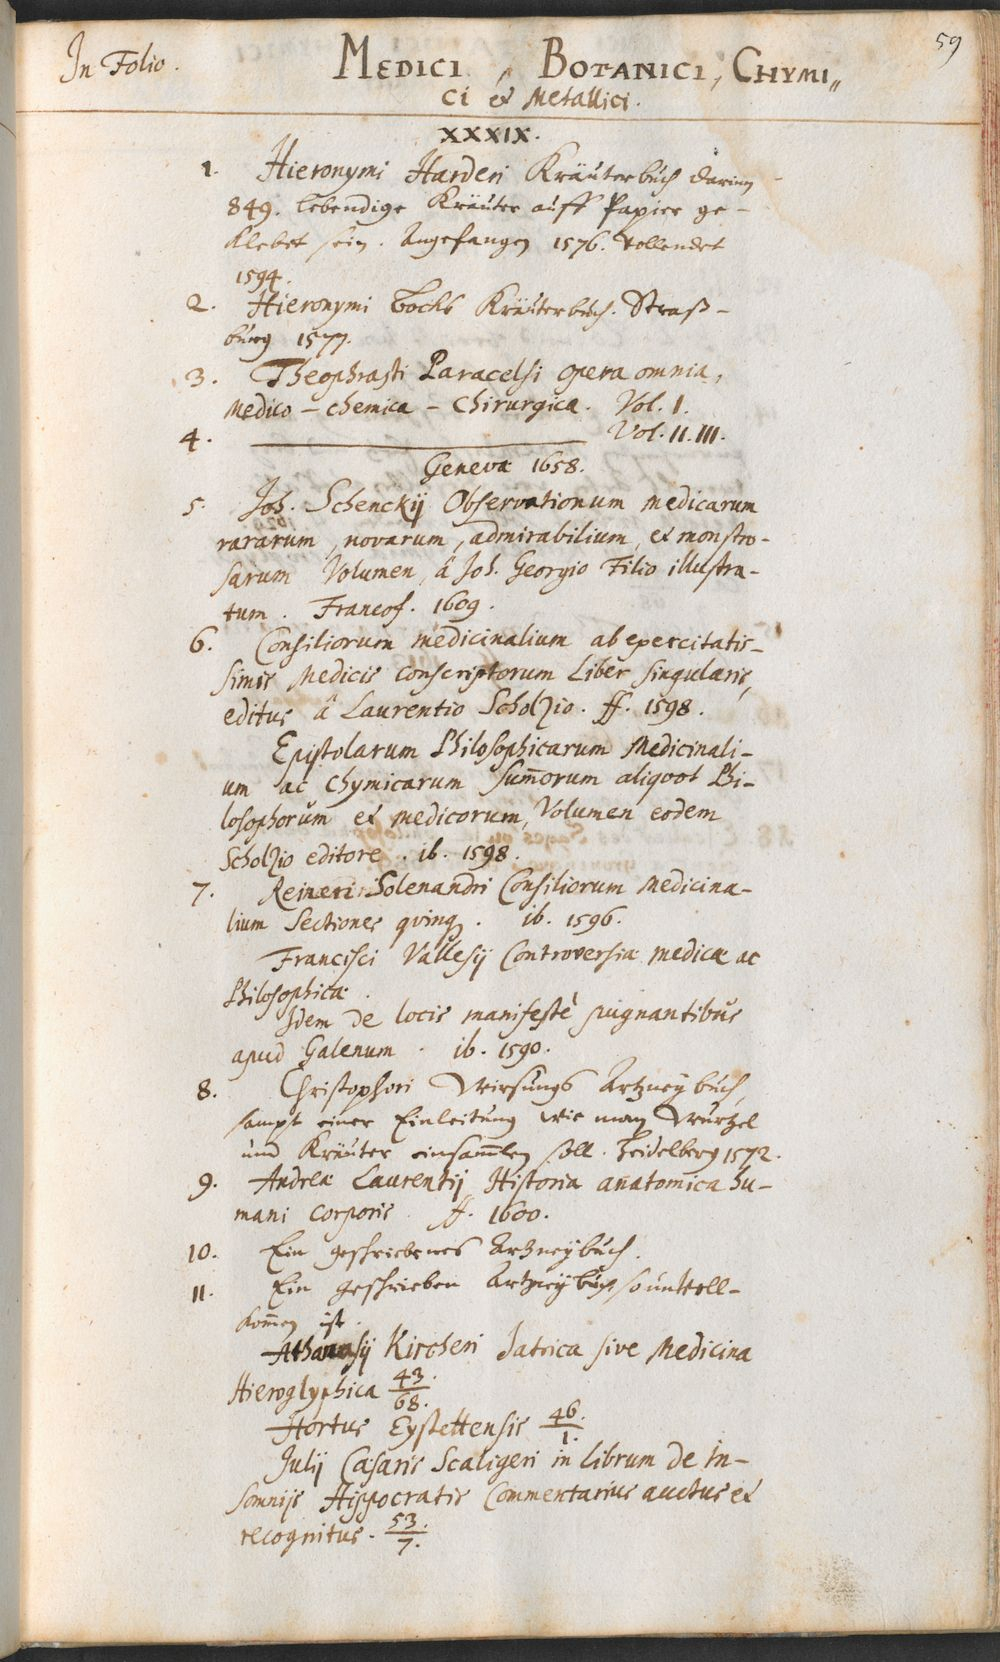 59
In Folio. MEDICI, BOTANICI, CHYMI„
CI et Metallici.
XXXIX.
1. Hieronymi Harderi Kräuterbuch darinn
849. lebendige Kräuter auff Papier ge-
klebet sein. Angefangen 1576. Vollendet
1594.
2. Hieronymi Bocks Kräuterbuch. Straß-
burg 1577.
3. Theophrasti Paracelsi opera omnia,
Medico-chemica-Chirurgica. Vol. I.
4. Vol. II. III.
Genevæ 1658.
5. Joh. Schenckij Observationum medicarum
rararum, novarum, admirabilium, et monstro-
sarum Volumen, â Joh. Georgio Filio illustra-
tum. Francof. 1609.
6. Consiliorum medicinalium ab exercitatis-
simis Medicis conscriptorum Liber singularis,
editus â Laurentio Scholzio. ff. 1598.
Epistolarum Philosophicarum Medicinali-
um ac Chymicarum sum̄orum aliqvot Phi-
losophorum et medicorum, Volumen eodem
Scholzio editore. ib. 1598.
7. Reineri Solenandri Consiliorum Medicina-
lium Sectiones qvinq. ib. 1596.
Francisci Vallesij Controversiæ medicæ ac
Philosophicæ.
Idem de locis manifestè pugnantibus
apud Galenum. ib. 1590.
8. Christophori Wirsungs Artzneybuch,
sampt einer Einleitung wie man Wurtzel
und Kräuter einsam̄len soll. Heidelberg 1572.
9. Andreæ Laurentij Historia anatomica hu-
mani corporis. ff. 1600.
10. Ein geschriebenes Artzneybuch.
11. Ein geschrieben Artzneybuch, so unvoll-
kom̄en ist.
Athanasij Kircheri Iatrica sive Medicina
Hieroglyphica 43./68.
Hortus Eystettensis 46./1.
Julij Cæsaris Scaligeri in librum de In-
somnijs Hippocratis Commentarius auctus et
recognitus. 53./7.